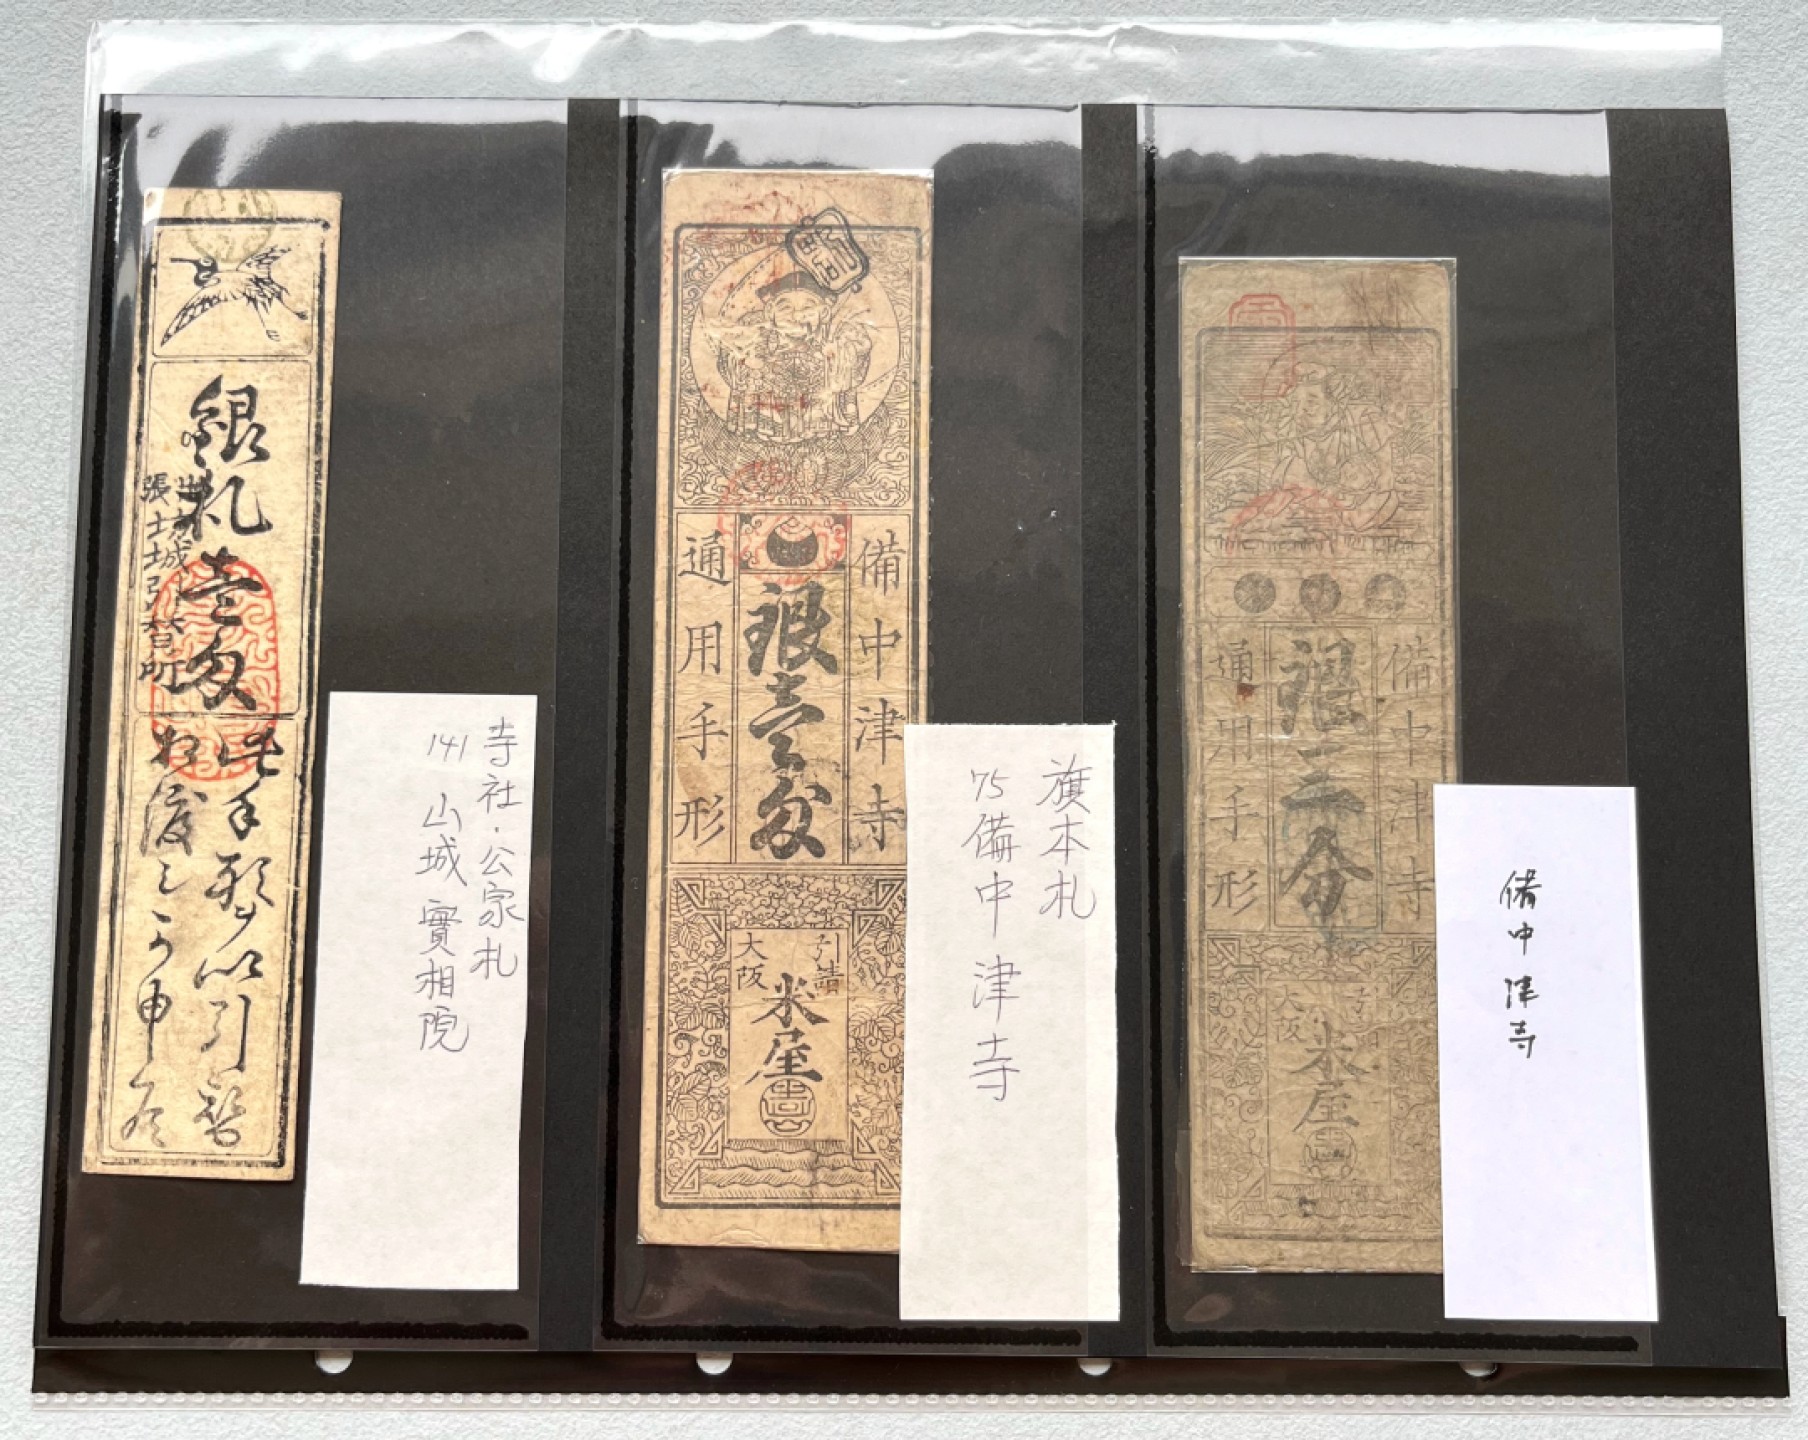 銀札壹匁
此手形ヲ以引替
相渡シ可申候
寺社・公家札
141 山城 實相院
備中津寺
銀壹匁
通用手形
引請
大阪
米屋
旗本札
75 備中津寺
備中津寺
銀三分
通用手形
引請
大阪
米屋
備中津寺